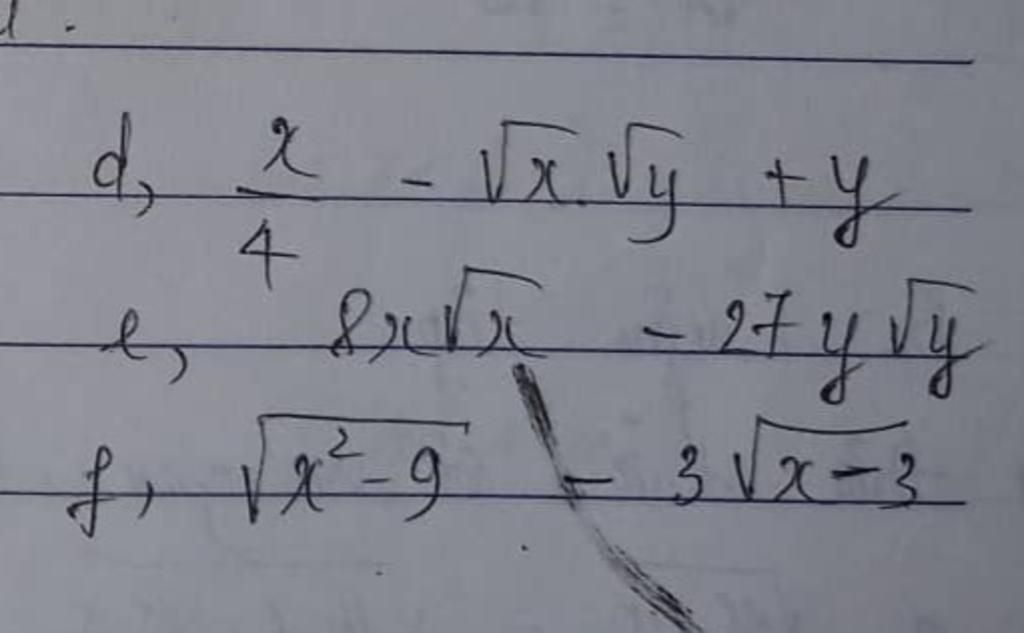 d, x/4 - √x.√y + y
e, 8x√x - 27y√y
f, √(x²-9) - 3√(x-3)